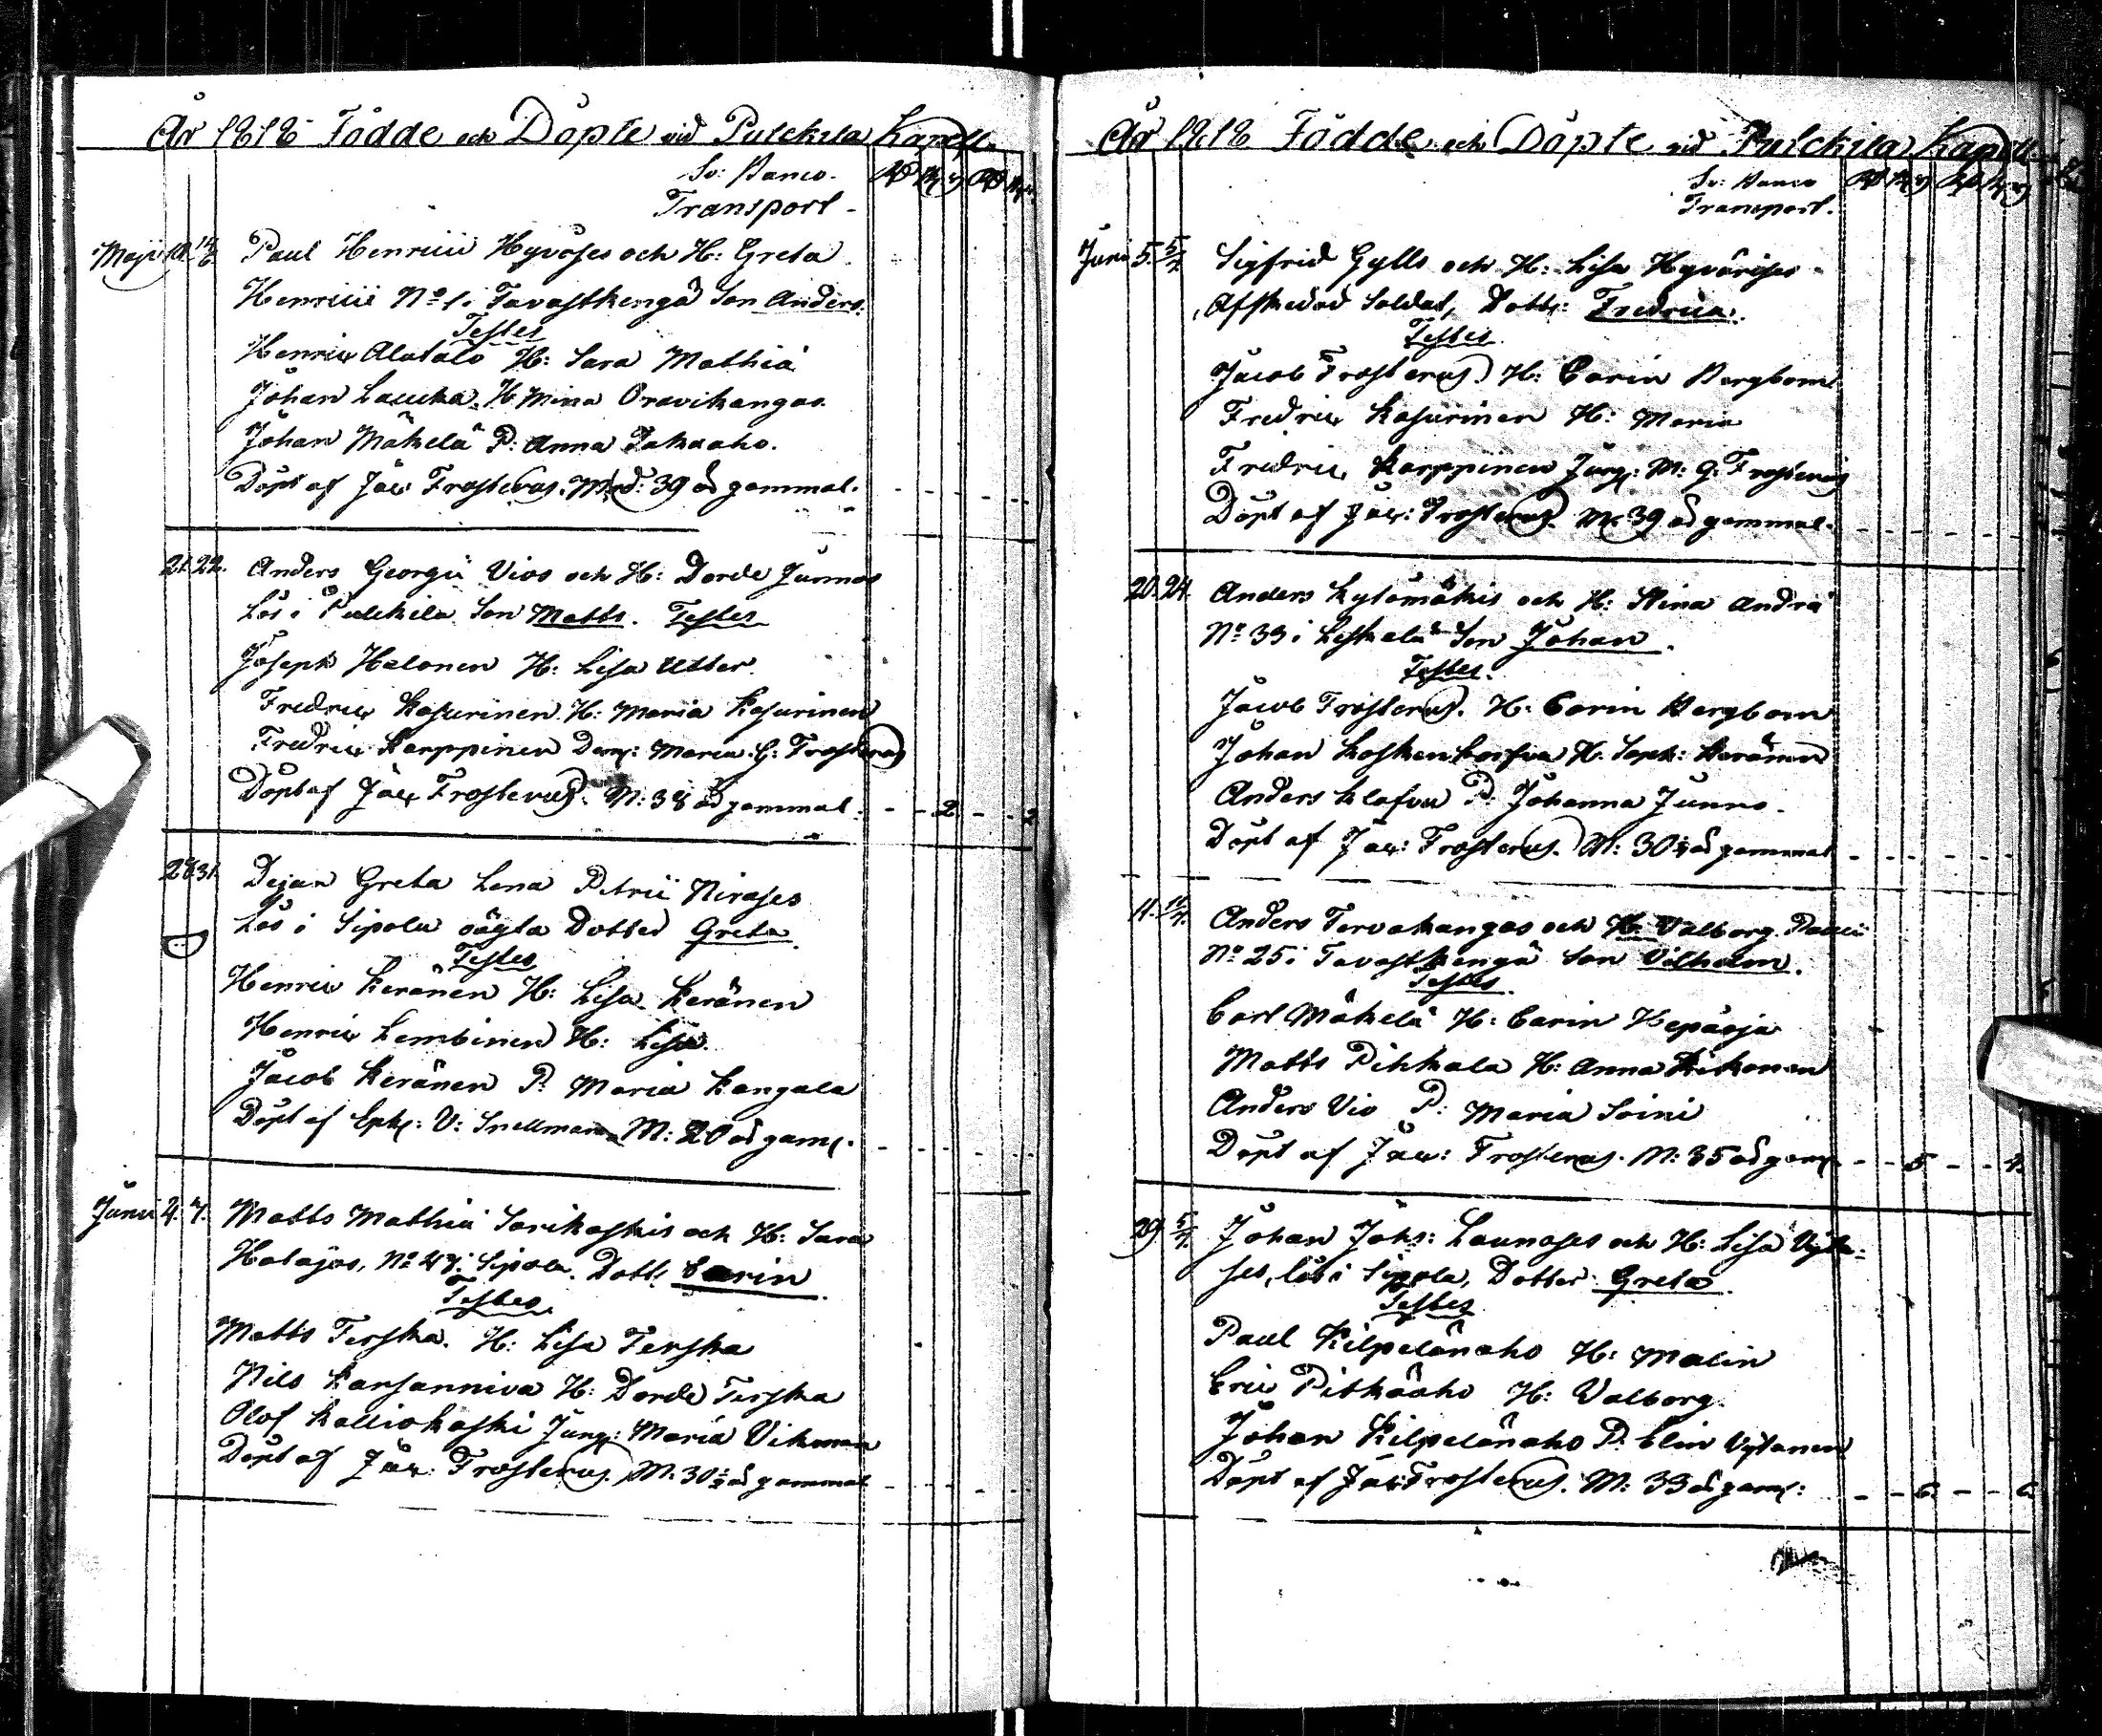 År 1818 Födde och Döpte vid Pulckila Kapell
Sv: Banco.
Transport
Maji 10. 14/6. Paul Henrici Hyväses och H: Greta
Henrici No 1 i Tavastkengä Son Anders.
Testes
Henric Alatalo H: Sara Mathiä
Johan Laucka, H Mina Oravikangas.
Johan Mäkelä P: Anna Jakuaho.
Döpt af Jac: Frosterus. Mod: 39 åd gammal.
21. 22. Anders Georgii Vios och H: Dorde Junnos
Lös i Pulckila Son Matts. Testes
Joseph Halonen H: Lisa Utter.
Fredric Kasurinen H: Maria Kasurinen
Fredric Karppinen Dem: Maria G: Frosterus
Döpt af Jac Frosterus. M: 38 åd gammal. - - 2 - - 2
28. 31. Dejan Greta Lena Petrii Niroses
Lös i Sipola oägta Dotter Greta.
Testes
Henric Keränen H: Lisa Keränen
Henric Lembinen H: Lisa.
Jacob Keränen P: Maria Kangala
Döpt af Eph: V: Snellman M: 20 åd gam:
Junii 4. 7. Matts Mathiä Sarikoskis och H: Sara
Halajas, No 47 i Sipola. Dott: Carin
Testes
Matts Terska. H: Lisa Terska
Nils Kansanniva H: Dorde Terska
Olof Kalliokoski Jungf: Maria Vikman
Döpt af Jac: Frosterus. M: 30 1/2 åd gammal
År 1818 Födde och Döpte vid Pulckila Kapell.
Sv: Banco
Transport.
Junii 5. 5/7. Sigfrid Gylls och H: Lisa Hyvärises
Afskedad Soldat, Dott: Fredrica.
Testes
Jacob Frosterus. H: Carin Bergbom
Fredric Kasurinen H: Maria
Fredric Karppinen Jungf: M: G: Frosterus
Döpt af Jac: Frosterus M: 39 åd gammal.
20. 24. Anders Kytömäkis och H: Stina Andrä
No 33 i Leskelä Son Johan.
Testes.
Jacob Frosterus. H: Carin Bergbom
Johan Koskenkorfva H. Soph: Keränen
Anders Klafva P: Johanna Junno.
Döpt af Jac: Frosterus. M: 30 1/2 åd gammal
11. Anders Tervakangas och H: Valborg Pauli
No 25 i Tavastkengä Son Vilhelm.
Testes.
Carl Mäkelä H: Carin Hepåoja
Matts Pihkala H: Anna Kikonen
Anders Vio P: Maria Soini
Döpt af Jac: Frosterus. M: 35 åd gam - - 5 - - 4.
29. 5/7. Johan Johs: Launoses och H: Lisa Vyta-
ses, lös i Sipola, Dotter Greta.
Testes
Paul Kilpelänaho H: Malin
Eric Pitkäaho H: Valborg.
Johan Kilpelänaho P: Elin Vytanen
Döpt af Jac: Frosterus. M: 33 åd gam: - - 6. - - 6.